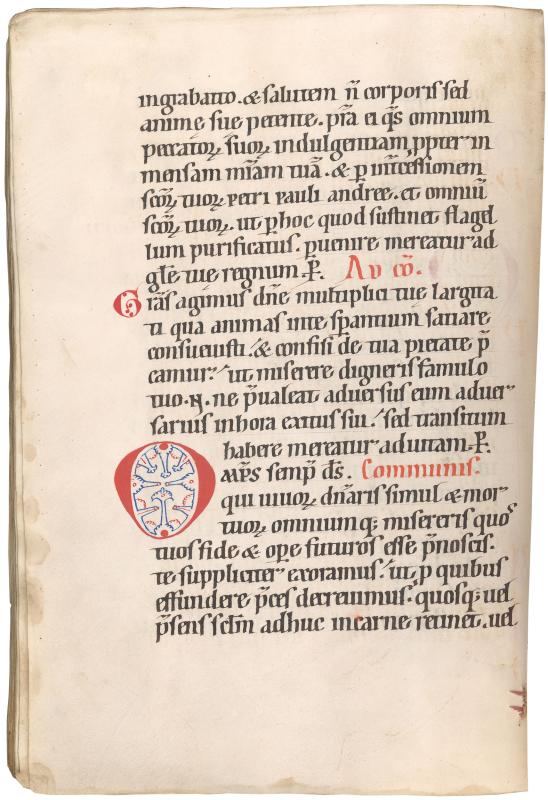 ingrabatto. & salutem n̄ corporis sed
animę suę petente. p̄ra ei q̄s omnium
peccatoꝝ suoꝝ indulgentiam ꝓpter in
mensam mīam tuā. & ꝑ int̄cessionem
sc̄oꝝ tuoꝝ petri pauli andree. et omniū
sc̄oꝝ tuoꝝ. ut ꝑ hoc quod sustinet flagel
lum purificatus. ꝑuenire mereatur ad
gl̄ę tuę regnum. P̄.
Ad cō.
Grās agimus dn̄e multiplici tuę largita
ti qua animas inte sꝑantium satiare
consueuisti. & confisi de tua pietate p̄
camur. ut miserere digneris famulo
tuo .N. ne p̄ualeat aduersus eum aduer
sarius inhora exitus sui. sed transitum
habere mereatur ad uitam. P̄.
Omp̄s semp̄ ds̄. Communis.
qui uiuoꝝ dn̄aris simul & mor
tuoꝝ omniumq; misereris quos
tuos fide & oꝑe futuros esse p̄noscis.
te suppliciter exoramus. ut ꝓ quibus
effundere p̄ces decreuimus. quosq; uel
p̄sens sc̄lm adhuc incarne retinet. uel